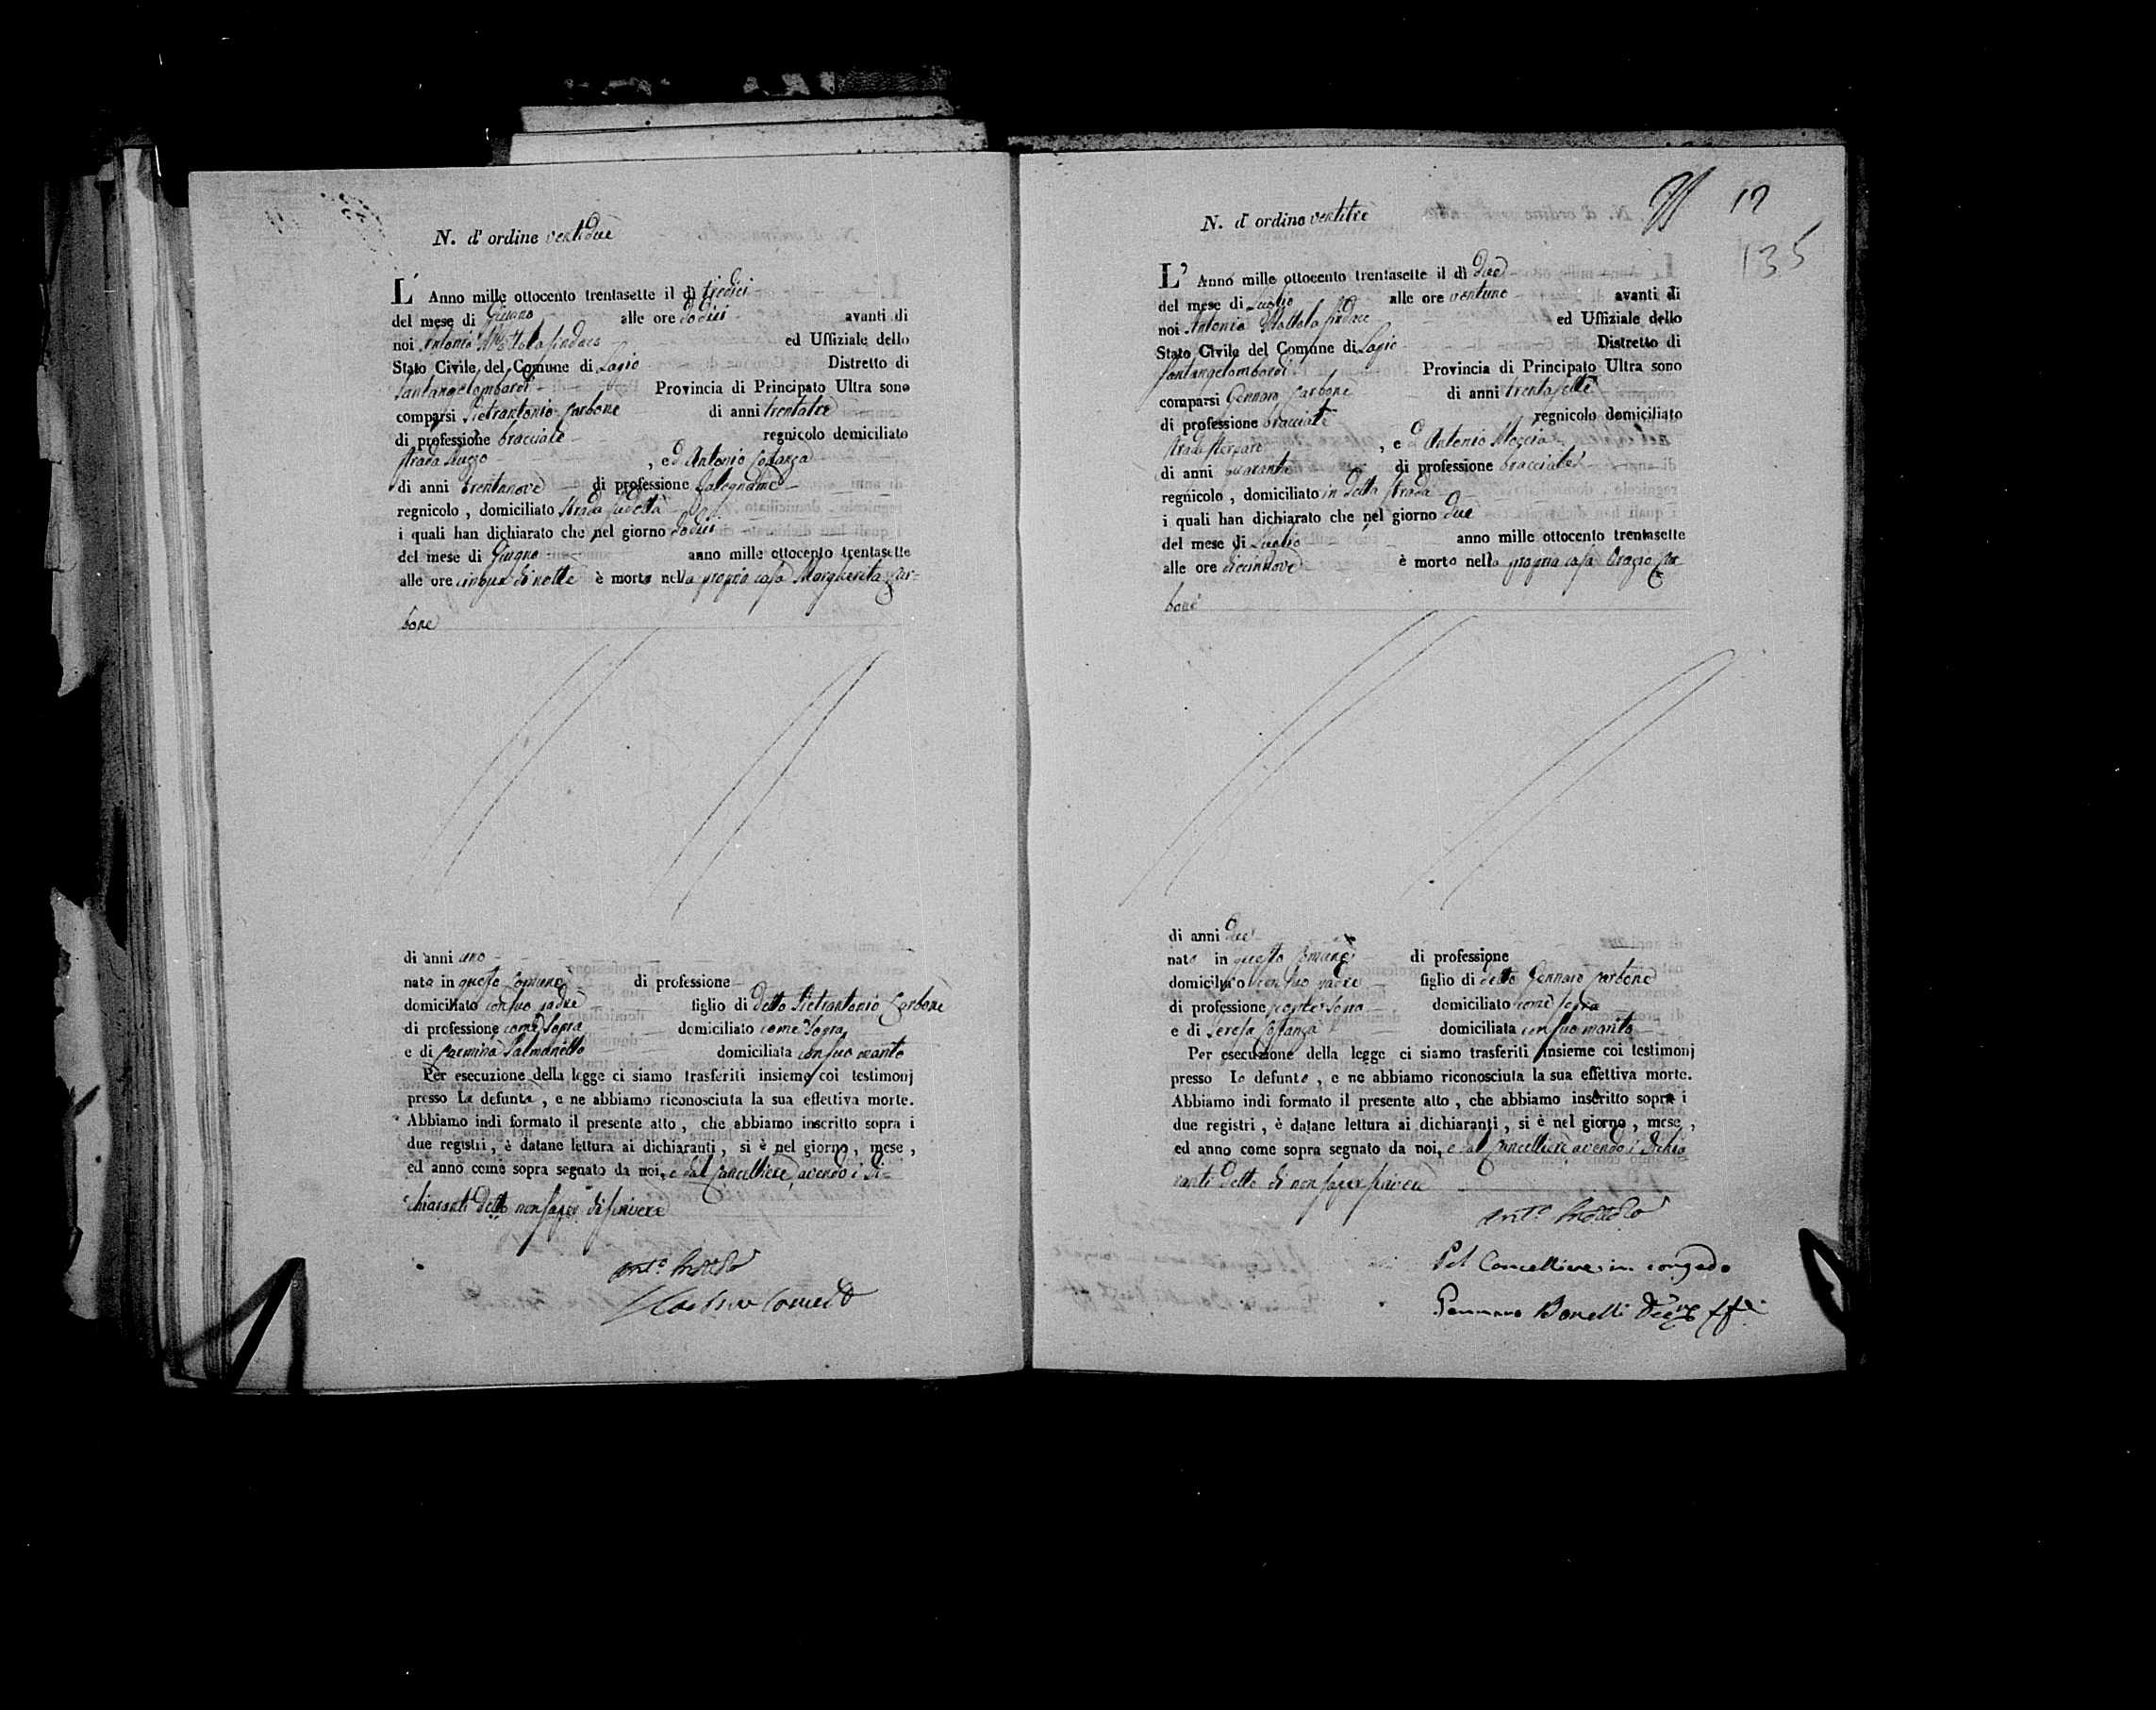 N. d'ordine ventidue
L' Anno mille ottocento trentasette il dì tredici
del mese di Giugno alle ore dodici avanti di
noi Antonio Mottola Sindaco ed Uffiziale dello
Stato Civile del Comune di Lagio Distretto di
Santangelombardi Provincia di Principato Ultra sono
comparsi Pietrantonio Carbone di anni trentatre
di professione bracciale regnicolo domiciliato
strada , ed Antonio Costanza
di anni trentanove di professione falegname
regnicolo , domiciliato strada sudetta
i quali han dichiarato che nel giorno dodici
del mese di Giugno anno mille ottocento trentasette
alle ore cinque di notte è morta nella propria casa Margherita Car-
bone
di anni uno
nata in questo Comune di professione
domiciliata con suo padre figlio di detto Pietrantonio Carbone
di professione come sopra domiciliato come sopra
e di Carmina Palmariello domiciliata con suo marito
Per esecuzione della legge ci siamo trasferiti insieme coi testimonj
presso La defunta , e ne abbiamo riconosciuta la sua effettiva morte.
Abbiamo indi formato il presente atto , che abbiamo inscritto sopra i
due registri , è datane lettura ai dichiaranti , si è nel giorno , mese ,
ed anno come sopra segnato da noi, e dal Cancelliere, avendo i di-
chiaranti detto non saper di scrivere
Ant.º Mottola
17
135
N. d'ordine ventitre
L' Anno mille ottocento trentasette il dì due
del mese di Luglio alle ore ventuno avanti di
noi Antonio Mottola Sindaco ed Uffiziale dello
Stato Civile del Comune di Lagio Distretto di
Santangelombardi Provincia di Principato Ultra sono
comparsi Gennaro Carbone di anni trentasette
di professione bracciale regnicolo domiciliato
strada , e d Antonio Moccia
di anni quaranta di professione bracciale
regnicolo , domiciliato in detta strada
i quali han dichiarato che nel giorno due
del mese di Luglio anno mille ottocento trentasette
alle ore diecinnove è morto nella propria casa Orazio Car-
bone
di anni due
nato in questo Comune di professione
domiciliato con suo padre figlio di detto Gennaro Carbone
di professione come sopra domiciliato come sopra
e di Teresa Costanza domiciliata con suo marito
Per esecuzione della legge ci siamo trasferiti insieme coi testimonj
presso Lo defunto , e ne abbiamo riconosciuta la sua effettiva morte.
Abbiamo indi formato il presente atto , che abbiamo inscritto sopra i
due registri , è datane lettura ai dichiaranti , si è nel giorno , mese ,
ed anno come sopra segnato da noi, e dal Cancelliere avendo i dichia
ranti detto di non saper scrivere
Ant.º Mottola
Pel Cancelliere in congedo
Gennaro Bonelli